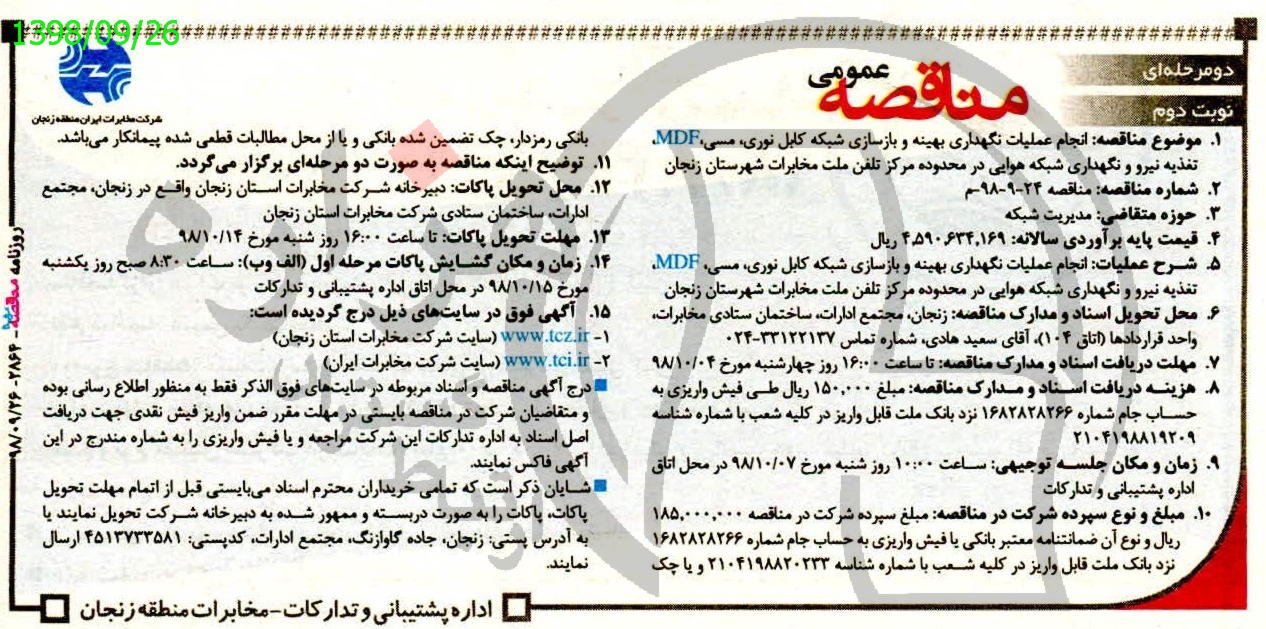 1398/09/26
دومرحله‌ای
نوبت دوم
مناقصه عمومی
شرکت مخابرات ایران منطقه زنجان
۱. موضوع مناقصه: انجام عملیات نگهداری بهینه و بازسازی شبکه کابل نوری، مسی، MDF،
تغذیه نیرو و نگهداری شبکه هوایی در محدوده مرکز تلفن ملت مخابرات شهرستان زنجان
۲. شماره مناقصه: مناقصه ۲۴-۹-۹۸-م
۳. حوزه متقاضی: مدیریت شبکه
۴. قیمت پایه برآوردی سالانه: ۴,۵۹۰,۶۳۴,۱۶۹ ریال
۵. شــرح عملیات: انجام عملیات نگهداری بهینه و بازسازی شبکه کابل نوری، مسی، MDF،
تغذیه نیرو و نگهداری شبکه هوایی در محدوده مرکز تلفن ملت مخابرات شهرستان زنجان
۶. محل تحویل اسناد و مدارک مناقصه: زنجان، مجتمع ادارات، ساختمان ستادی مخابرات،
واحد قراردادها (اتاق ۱۰۴)، آقای سعید هادی، شماره تماس ۳۳۱۲۲۱۳۷-۰۲۴
۷. مهلت دریافت اسناد و مدارک مناقصه: تا ساعت ۱۶:۰۰ روز چهارشنبه مورخ ۹۸/۱۰/۰۴
۸. هزینــه دریافت اســناد و مــدارک مناقصه: مبلغ ۱۵۰,۰۰۰ ریال طــی فیش واریزی به
حســاب جام شماره ۱۶۸۲۸۲۸۲۶۶ نزد بانک ملت قابل واریز در کلیه شعب با شماره شناسه
۲۱۰۴۱۹۸۸۱۹۲۰۹
۹. زمان و مکان جلســه توجیهی: ســاعت ۱۰:۰۰ روز شنبه مورخ ۹۸/۱۰/۰۷ در محل اتاق
اداره پشتیبانی و تدارکات
۱۰. مبلغ و نوع سپرده شرکت در مناقصه: مبلغ سپرده شرکت در مناقصه ۱۸۵,۰۰۰,۰۰۰
ریال و نوع آن ضمانتنامه معتبر بانکی یا فیش واریزی به حساب جام شماره ۱۶۸۲۸۲۸۲۶۶
نزد بانک ملت قابل واریز در کلیه شــعب با شماره شناسه ۲۱۰۴۱۹۸۸۲۰۲۳۳ و یا چک
بانکی رمزدار، چک تضمین شده بانکی و یا از محل مطالبات قطعی شده پیمانکار می‌باشد.
۱۱. توضیح اینکه مناقصه به صورت دو مرحله‌ای برگزار می‌گردد.
۱۲. محل تحویل پاکات: دبیرخانه شــرکت مخابرات اســتان زنجان واقــع در زنجان، مجتمع
ادارات، ساختمان ستادی شرکت مخابرات استان زنجان
۱۳. مهلت تحویل پاکات: تا ساعت ۱۶:۰۰ روز شنبه مورخ ۹۸/۱۰/۱۴
۱۴. زمان و مکان گشــایش پاکات مرحله اول (الف وب): ســاعت ۸:۳۰ صبح روز یکشنبه
مورخ ۹۸/۱۰/۱۵ در محل اتاق اداره پشتیبانی و تدارکات
۱۵. آگهی فوق در سایت‌های ذیل درج گردیده است:
۱- www.tcz.ir (سایت شرکت مخابرات استان زنجان)
۲- www.tci.ir (سایت شرکت مخابرات ایران)
درج آگهی مناقصه و اسناد مربوطه در سایت‌های فوق الذکر فقط به منظور اطلاع رسانی بوده
و متقاضیان شرکت در مناقصه بایستی در مهلت مقرر ضمن واریز فیش نقدی جهت دریافت
اصل اسناد به اداره تدارکات این شرکت مراجعه و یا فیش واریزی را به شماره مندرج در این
آگهی فاکس نمایند.
شــایان ذکر است که تمامی خریداران محترم اسناد می‌بایستی قبل از اتمام مهلت تحویل
پاکات، پاکات را به صورت دربســته و ممهور شــده به دبیرخانه شــرکت تحویل نمایند یا
به آدرس پستی: زنجان، جاده گاوازنگ، مجتمع ادارات، کدپستی: ۴۵۱۳۷۳۳۵۸۱ ارسال
نمایند.
اداره پشتیبانی و تدارکات-مخابرات منطقه زنجان
روزنامه مناقصه - ۲۸۶۴ - ۹۸/۰۹/۲۶